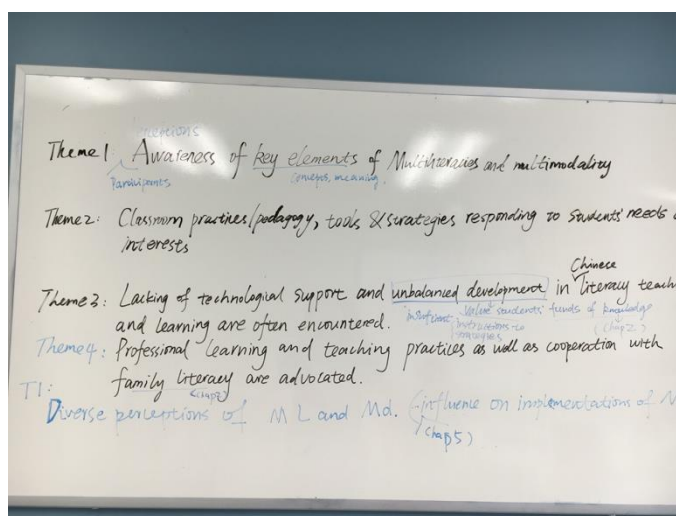 Theme1 Awareness of key elements of Multiliteracies and multimodality
Participants concepts, meaning
Theme2: Classroom practices/pedagogy, tools & strategies responding to students' needs
interests
Chinese
Theme3: Lacking of technological support and unbalanced development in literacy teach
and learning are often encountered. students' funds of knowledge
(chap2)
Theme4: Professional learning and teaching practices as well as cooperation with
family literacy are advocated.
T1: (chap2)
Diverse perceptions of ML and Md. (influence on implementations of M
chap5)